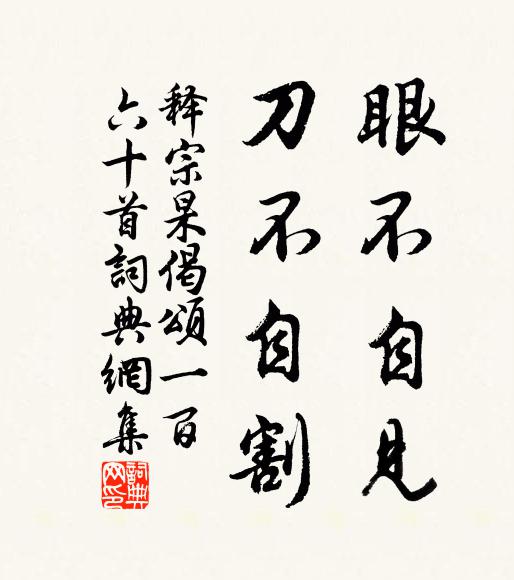 眼不自見
刀不自割
释宗杲偈頌一百
六十首詞典網集
詞典网印